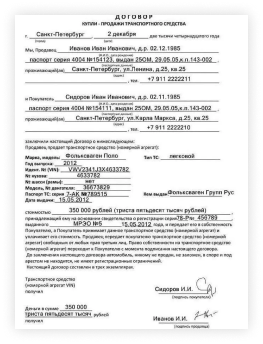 ДОГОВОР
КУПЛИ - ПРОДАЖИ ТРАНСПОРТНОГО СРЕДСТВА
г. Санкт-Петербург 2 декабря две тысячи четырнадцатого года
Мы, Продавец, Иванов Иван Иванович, д.р. 02.12.1985
паспорт серия 4004 №154123, выдан 25ОМ, 29.05.05,к.п.143-002
проживающий(ая) Санкт-Петербург, ул.Ленина, д.25, кв.25
тел. +7 911 2222210
и Покупатель Сидоров Иван Иванович, д.р. 03.11.1985
паспорт серия 4004 №154111, выдан 25ОМ, 29.05.05,к.п.143-002
проживающий(ая) Санкт-Петербург, ул.Карла Маркса, д.25, кв.25
тел. +7 911 2222211
заключили настоящий Договор о нижеследующем:
Продавец продает транспортное средство (номерной агрегат):
Марка, модель: Фольксваген Поло Тип ТС: легковой
Год выпуска: 2012
Идент. № (VIN): VWV2341J3X4633782
№ кузова: 4633782
№ рамы: нет
Модель, № двигателя: 36673829
Паспорт ТС: серия 7-АК №789515 Кем выдан Фольксваген Групп Рус
Дата выдачи: 15.05.2012
стоимостью: 350 000 рублей (триста пятьдесят тысяч рублей)
принадлежащий ему на основании свидетельства о регистрации серия 78-Рч № 456789
выданного МРЭО №5 15.05.2012 года, и передает его в собственность
Покупателя, а Покупатель принимает данное транспортное средство (номерной агрегат) и
уплачивает его стоимость. Продавец обязуется передать транспортное средство (номерной
агрегат) свободным от любых прав третьих лиц. Право собственности на транспортное средство
(номерной агрегат) переходит к Покупателю с момента подписания настоящего договора.
До заключения настоящего договора ТС никому не продано, не заложено, в споре и под
арестом не находится, не имеет ограничений в использовании.
Настоящий договор составлен в трех экземплярах.
Транспортное средство
(номерной агрегат VIN)
получил
Сидоров И.И.
(подпись покупателя)
Деньги в сумме 350 000
триста пятьдесят тысяч рублей
получил
Иванов И.И.
(подпись продавца)